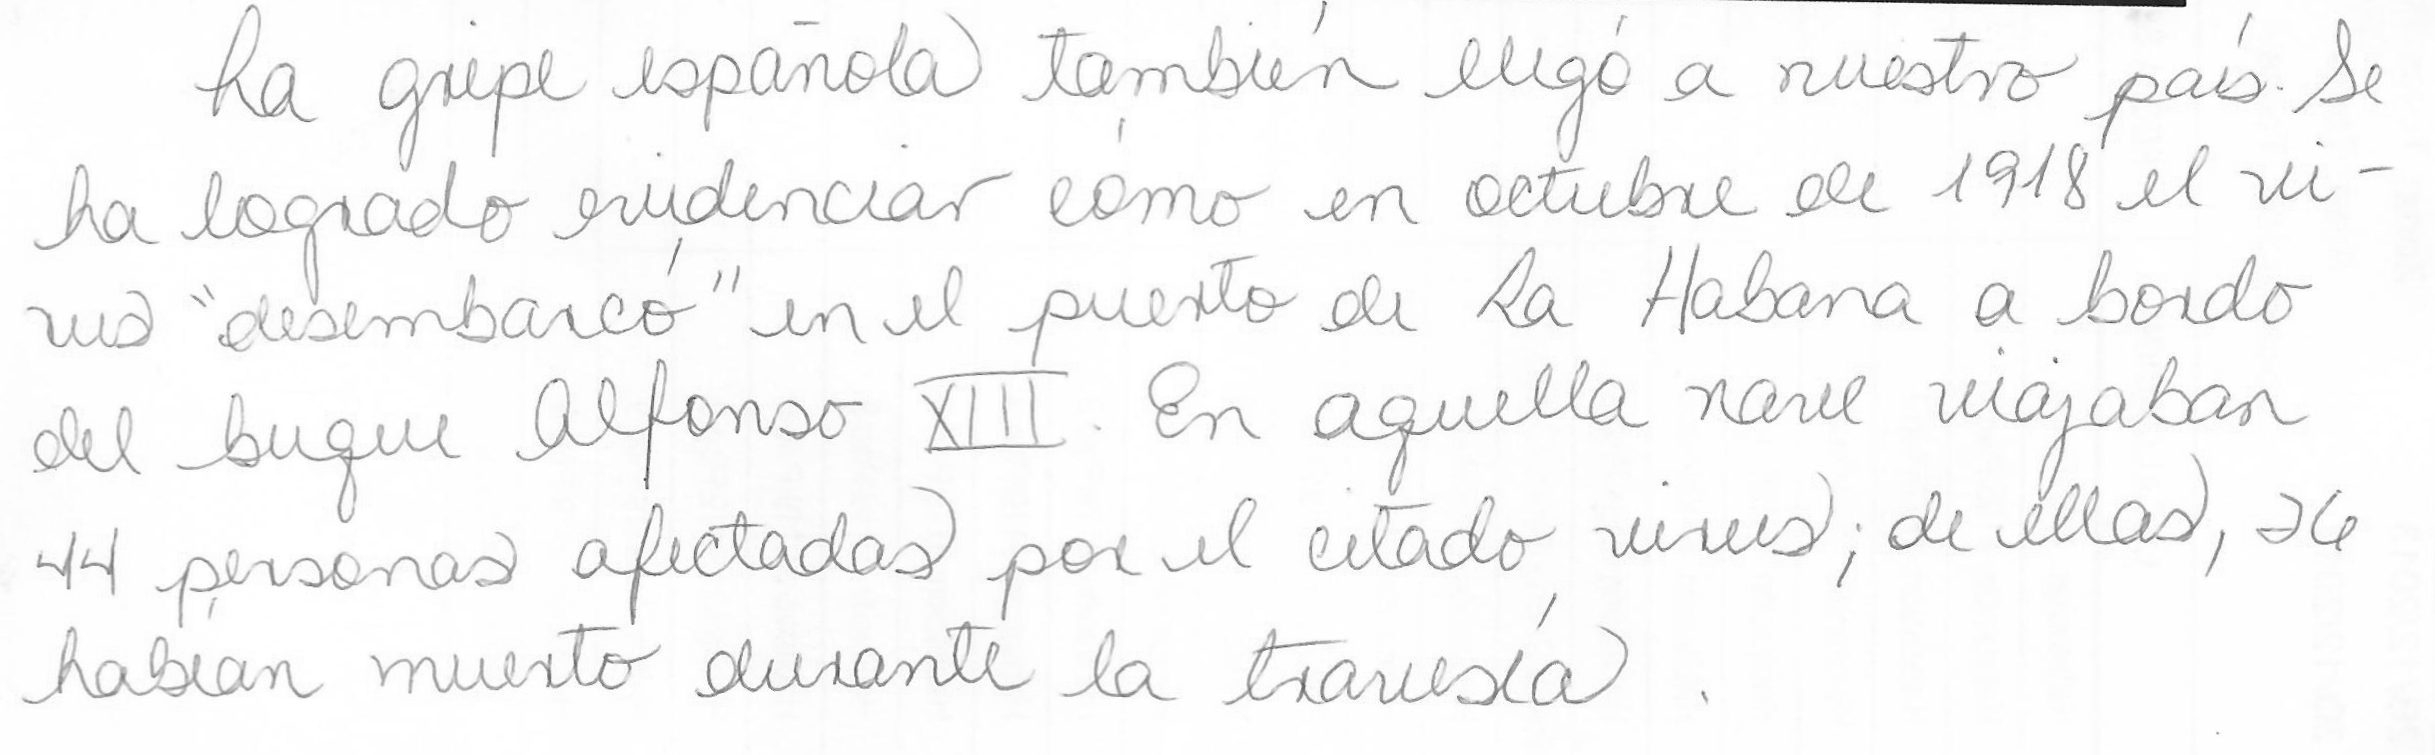 La gripe española también llegó a nuestro país. Se
ha logrado evidenciar cómo en octubre de 1918 el vi-
rus "desembarcó" en el puerto de La Habana a bordo
del buque Alfonso XIII. En aquella nave viajaban
44 personas afectadas por el citado virus; de ellas, 26
habían muerto durante la travesía.